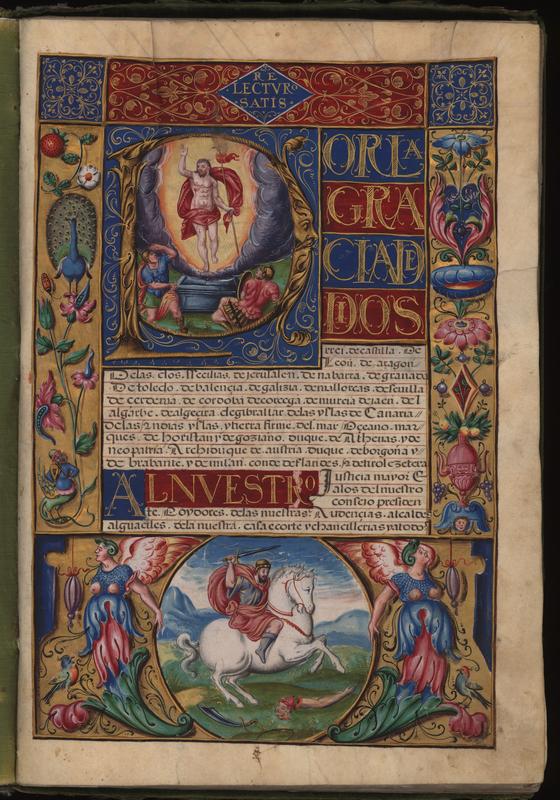 RE
LECTVRO
SATIS
ORLA
GRA
CIADE
DIOS
rrei. decastilla. De
Leon. de aragon
Delas. dos. secilias. de jerusalen. de nabarra. de granada
De toledo. de balencia. de galizia. de mallorcas. de seuilla
de cerdenia. de cordoba decorcega. de murcia de jaen. del
algarbe. de algecira. de gibraltar. de las yslas de Canaria
de las yndias yslas. y tierra firme. del. mar Oceano. mar
ques. de Horistan y de goziano. duque. de Athenas. y de
neopatria. Archiduque de. austria. duque. de borgona y
de brabante. y de milan. conde de flandes. de tirol etcetera
ALNVESTRO justicia mayor E
alos del nuestro
consejo presiden
te. Oydores. delas nuestras. Audencias. alcaldes
alguaciles. dela nuestra. casa e corte y chancillerias y a todos